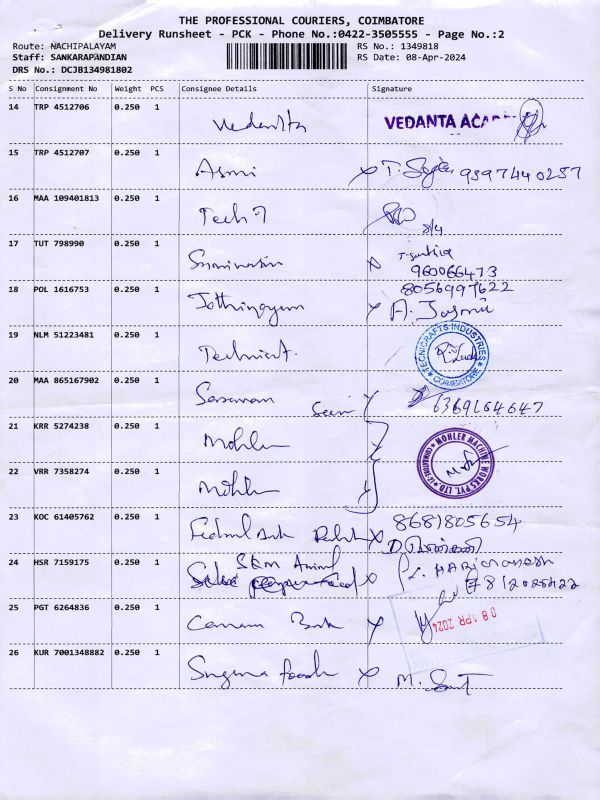 THE PROFESSIONAL COURIERS, COIMBATORE
Delivery Runsheet - PCK - Phone No.:0422-3505555 - Page No.:2
Route: NACHIPALAYAM
Staff: SANKARAPANDIAN
DRS No.: DCJB134981802
RS No.: 1349818
RS Date: 08-Apr-2024
S No Consignment No Weight PCS Consignee Details Signature
14 TRP 4512706 0.250 1 Vedanta VEDANTA
15 TRP 4512707 0.250 1 Asmi 9397440257
16 MAA 109401813 0.250 1 Tech 8/4
17 TUT 798990 0.250 1 960066473
18 POL 1616753 0.250 1 8056997622
19 NLM 51223481 0.250 1 TECNICRAFTS INDUSTRIES COIMBATORE
20 MAA 865167902 0.250 1 6369164647
21 KRR 5274238 0.250 1 Mohler MOHLER MACHINE WORKS PVT. LTD
22 VRR 7358274 0.250 1 Mohler
23 KOC 61405762 0.250 1 Federal Bank 8681805654
24 HSR 7159175 0.250 1 SKM Animal
25 PGT 6264836 0.250 1 Canara Bank 08 APR 2024
26 KUR 7001348882 0.250 1 Suguna foods M.